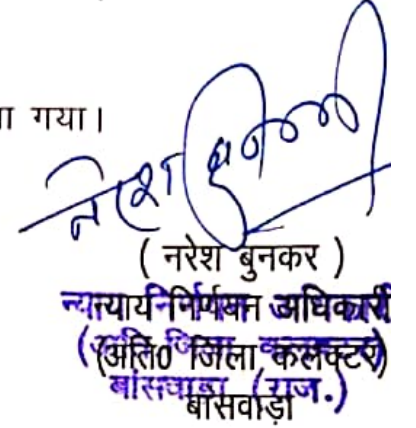 गया।
( नरेश बुनकर )
न्याय निर्णयन अधिकारी
(अति0 जिला कलक्टर)
बांसवाड़ा (राज.)
बांसवाड़ा